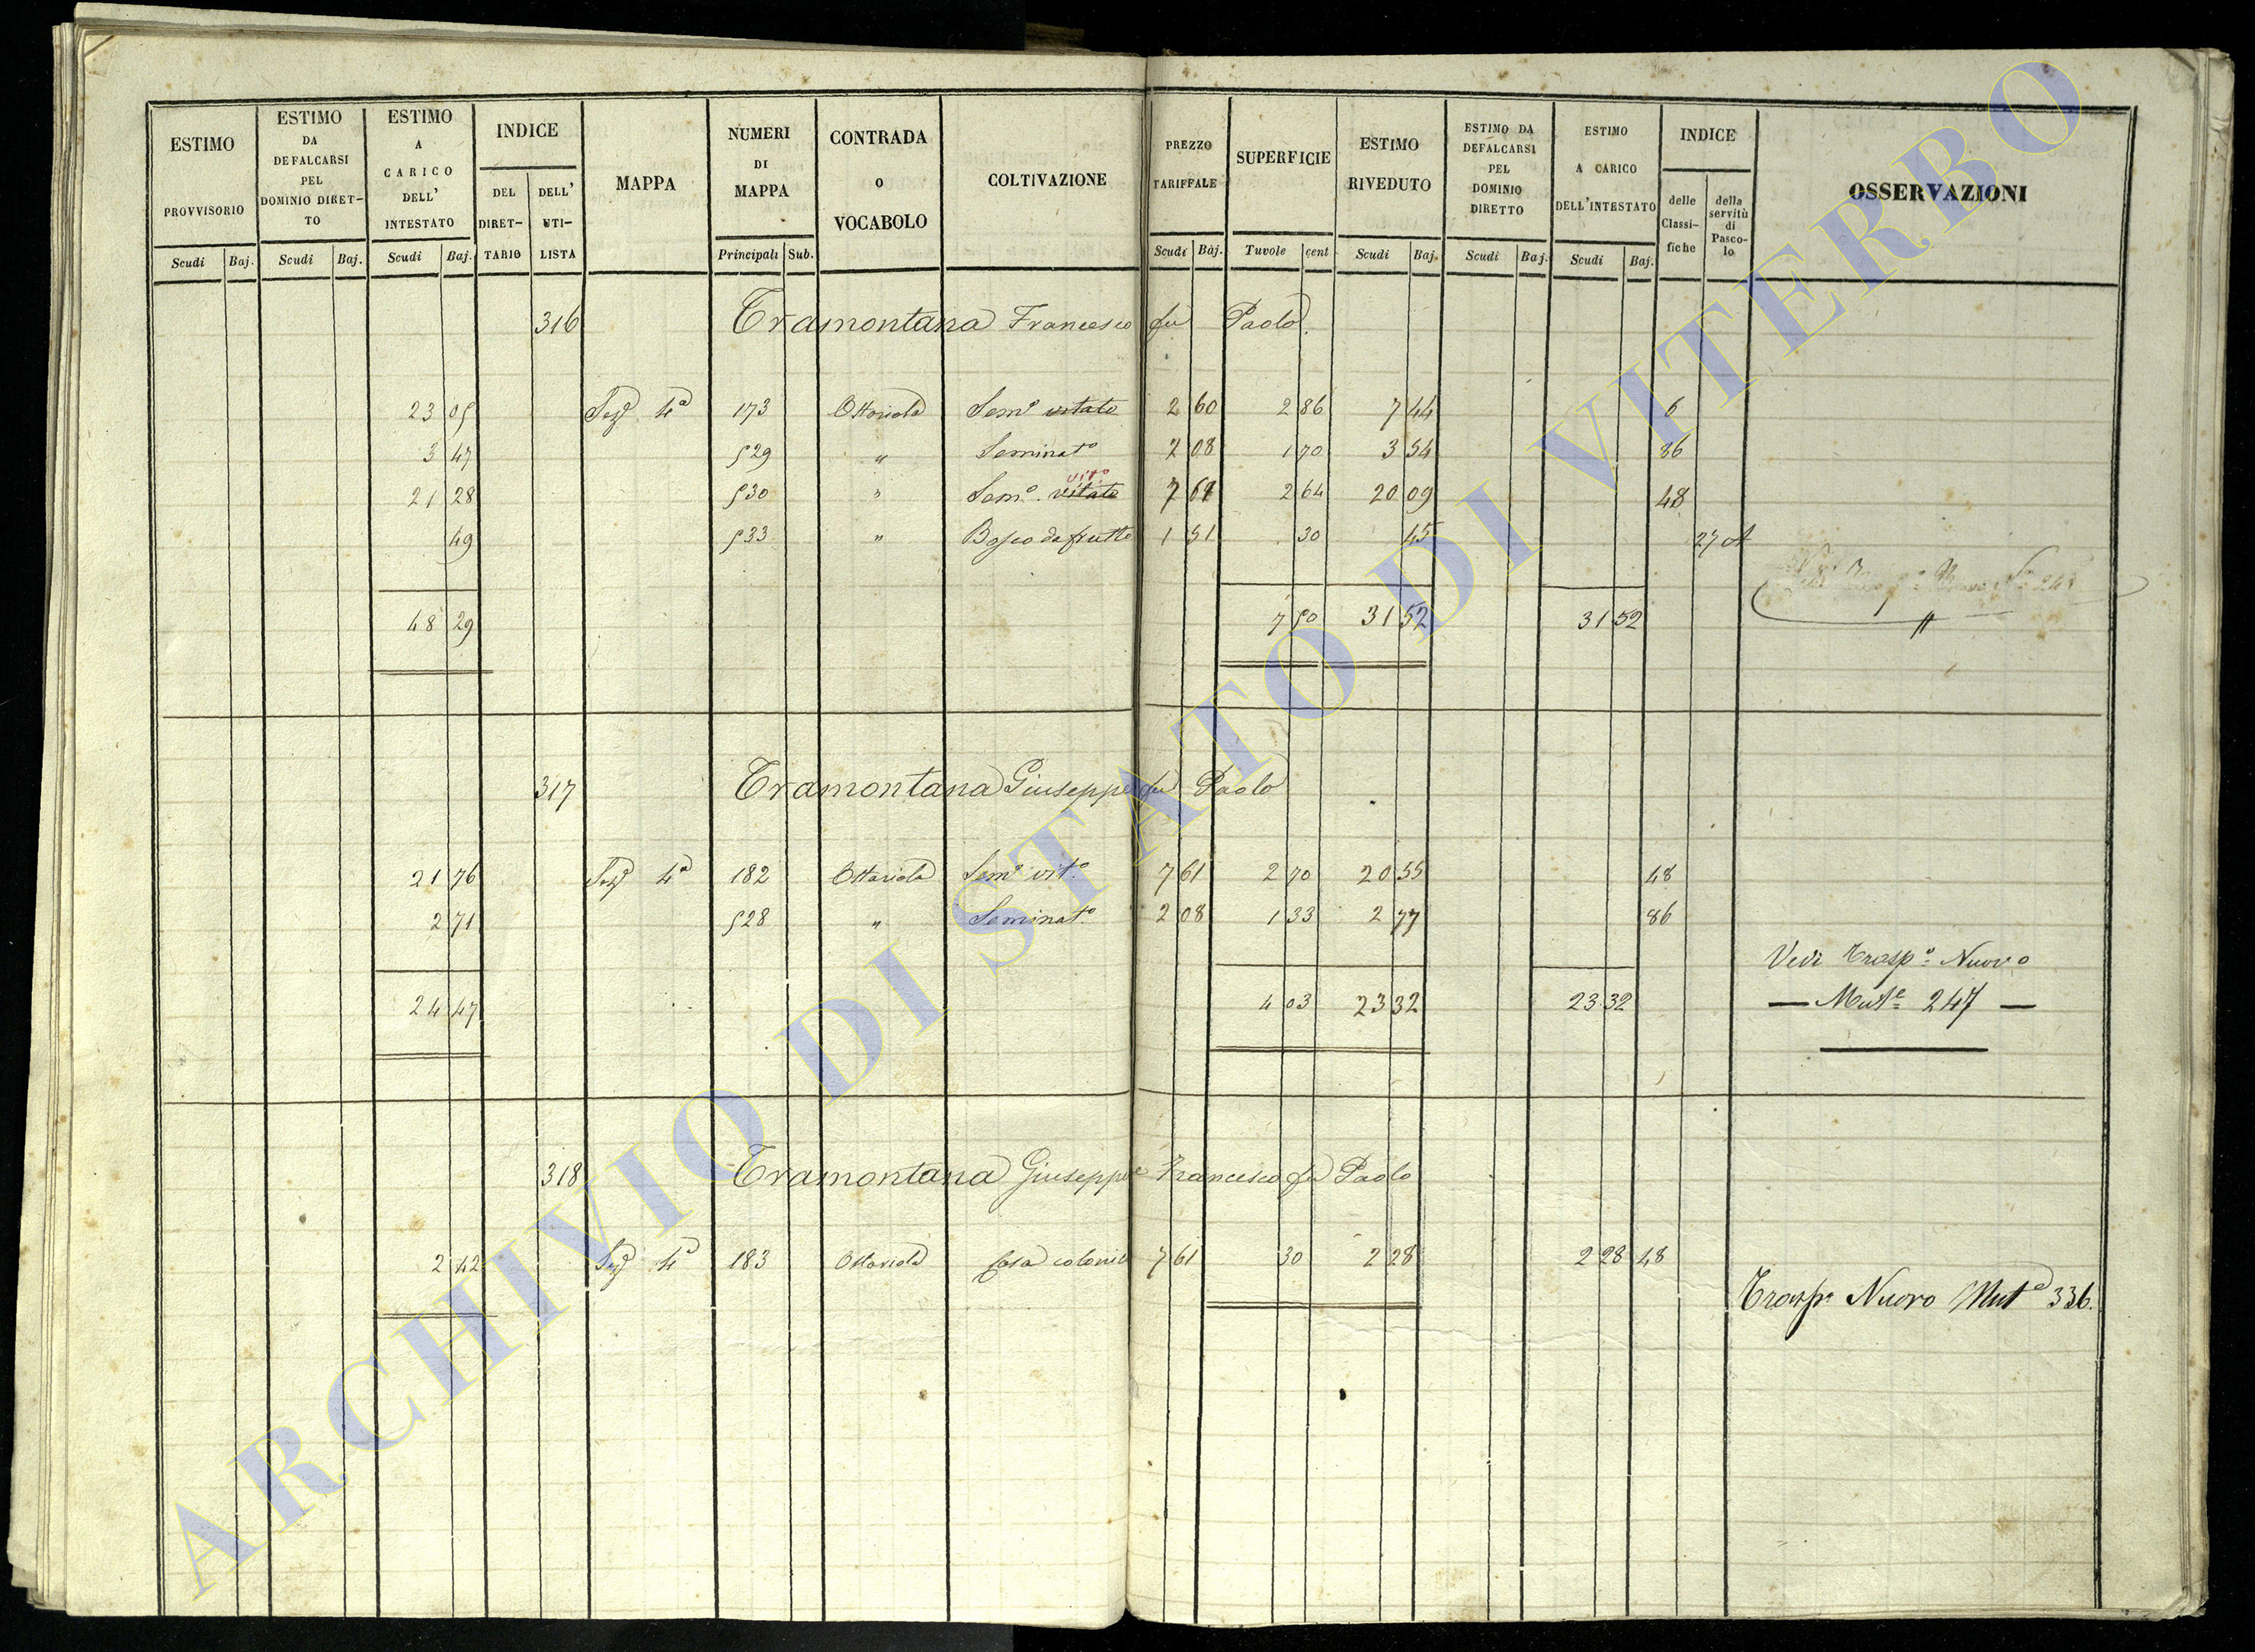 ESTIMO PROVVISORIO
Scudi Baj.
ESTIMO DA DEFALCARSI PEL DOMINIO DIRET-TO
Scudi Baj.
ESTIMO A CARICO DELL' INTESTATO
Scudi Baj.
INDICE
DEL DIRET-TARIO
DELL' UTI-LISTA
MAPPA
NUMERI DI MAPPA
Principali Sub.
CONTRADA O VOCABOLO
COLTIVAZIONE
PREZZO TARIFFALE
Scudi Baj.
SUPERFICIE
Tavole cent
ESTIMO RIVEDUTO
Scudi Baj.
ESTIMO DA DEFALCARSI PEL DOMINIO DIRETTO
Scudi Baj.
ESTIMO A CARICO DELL'INTESTATO
Scudi Baj.
INDICE
delle Classi-fiche
della servitù di Pasco-lo
OSSERVAZIONI
316 Tramontana Francesco fu Paolo.
23 05 4a 173 Ottariola Semo vitato 2 60 2 86 7 44 6
3 47 529 " Seminato 2 08 1 70 3 54 86
vito
21 28 530 " Semo. vitato 7 61 2 64 20 09 48
49 533 " Bosco da frutto 1 51 30 45 27 A
48 29 7 50 31 52 31 52
"
317 Tramontana Giuseppe fu Paolo
21 76 4a 182 Ottariola Semo vito. 7 61 2 70 20 55 48
2 71 528 " Seminato. 2 08 1 33 2 77 86
Vedi Traspo Nuovo
24 47 4 03 23 32 23 32 — Mute 247 —
318 Tramontana Giuseppe e Francesco fu Paolo
2 42 4a 183 Ottariola Casa colonic 7 61 30 2 28 2 28 48
Trasp. Nuovo Muta 336.
ARCHIVIO DI STATO DI VITERBO